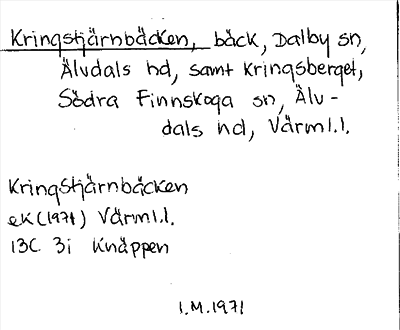 Kringstjärnbäcken, bäck, Dalby sn,
Älvdals hd, samt Kringsberget,
Södra Finnskoga sn, Älv-
dals hd, Värml.l.
Kringstjärnbäcken
eK (1971) Värml.l.
13C 3i Knäppen
I.M.1971